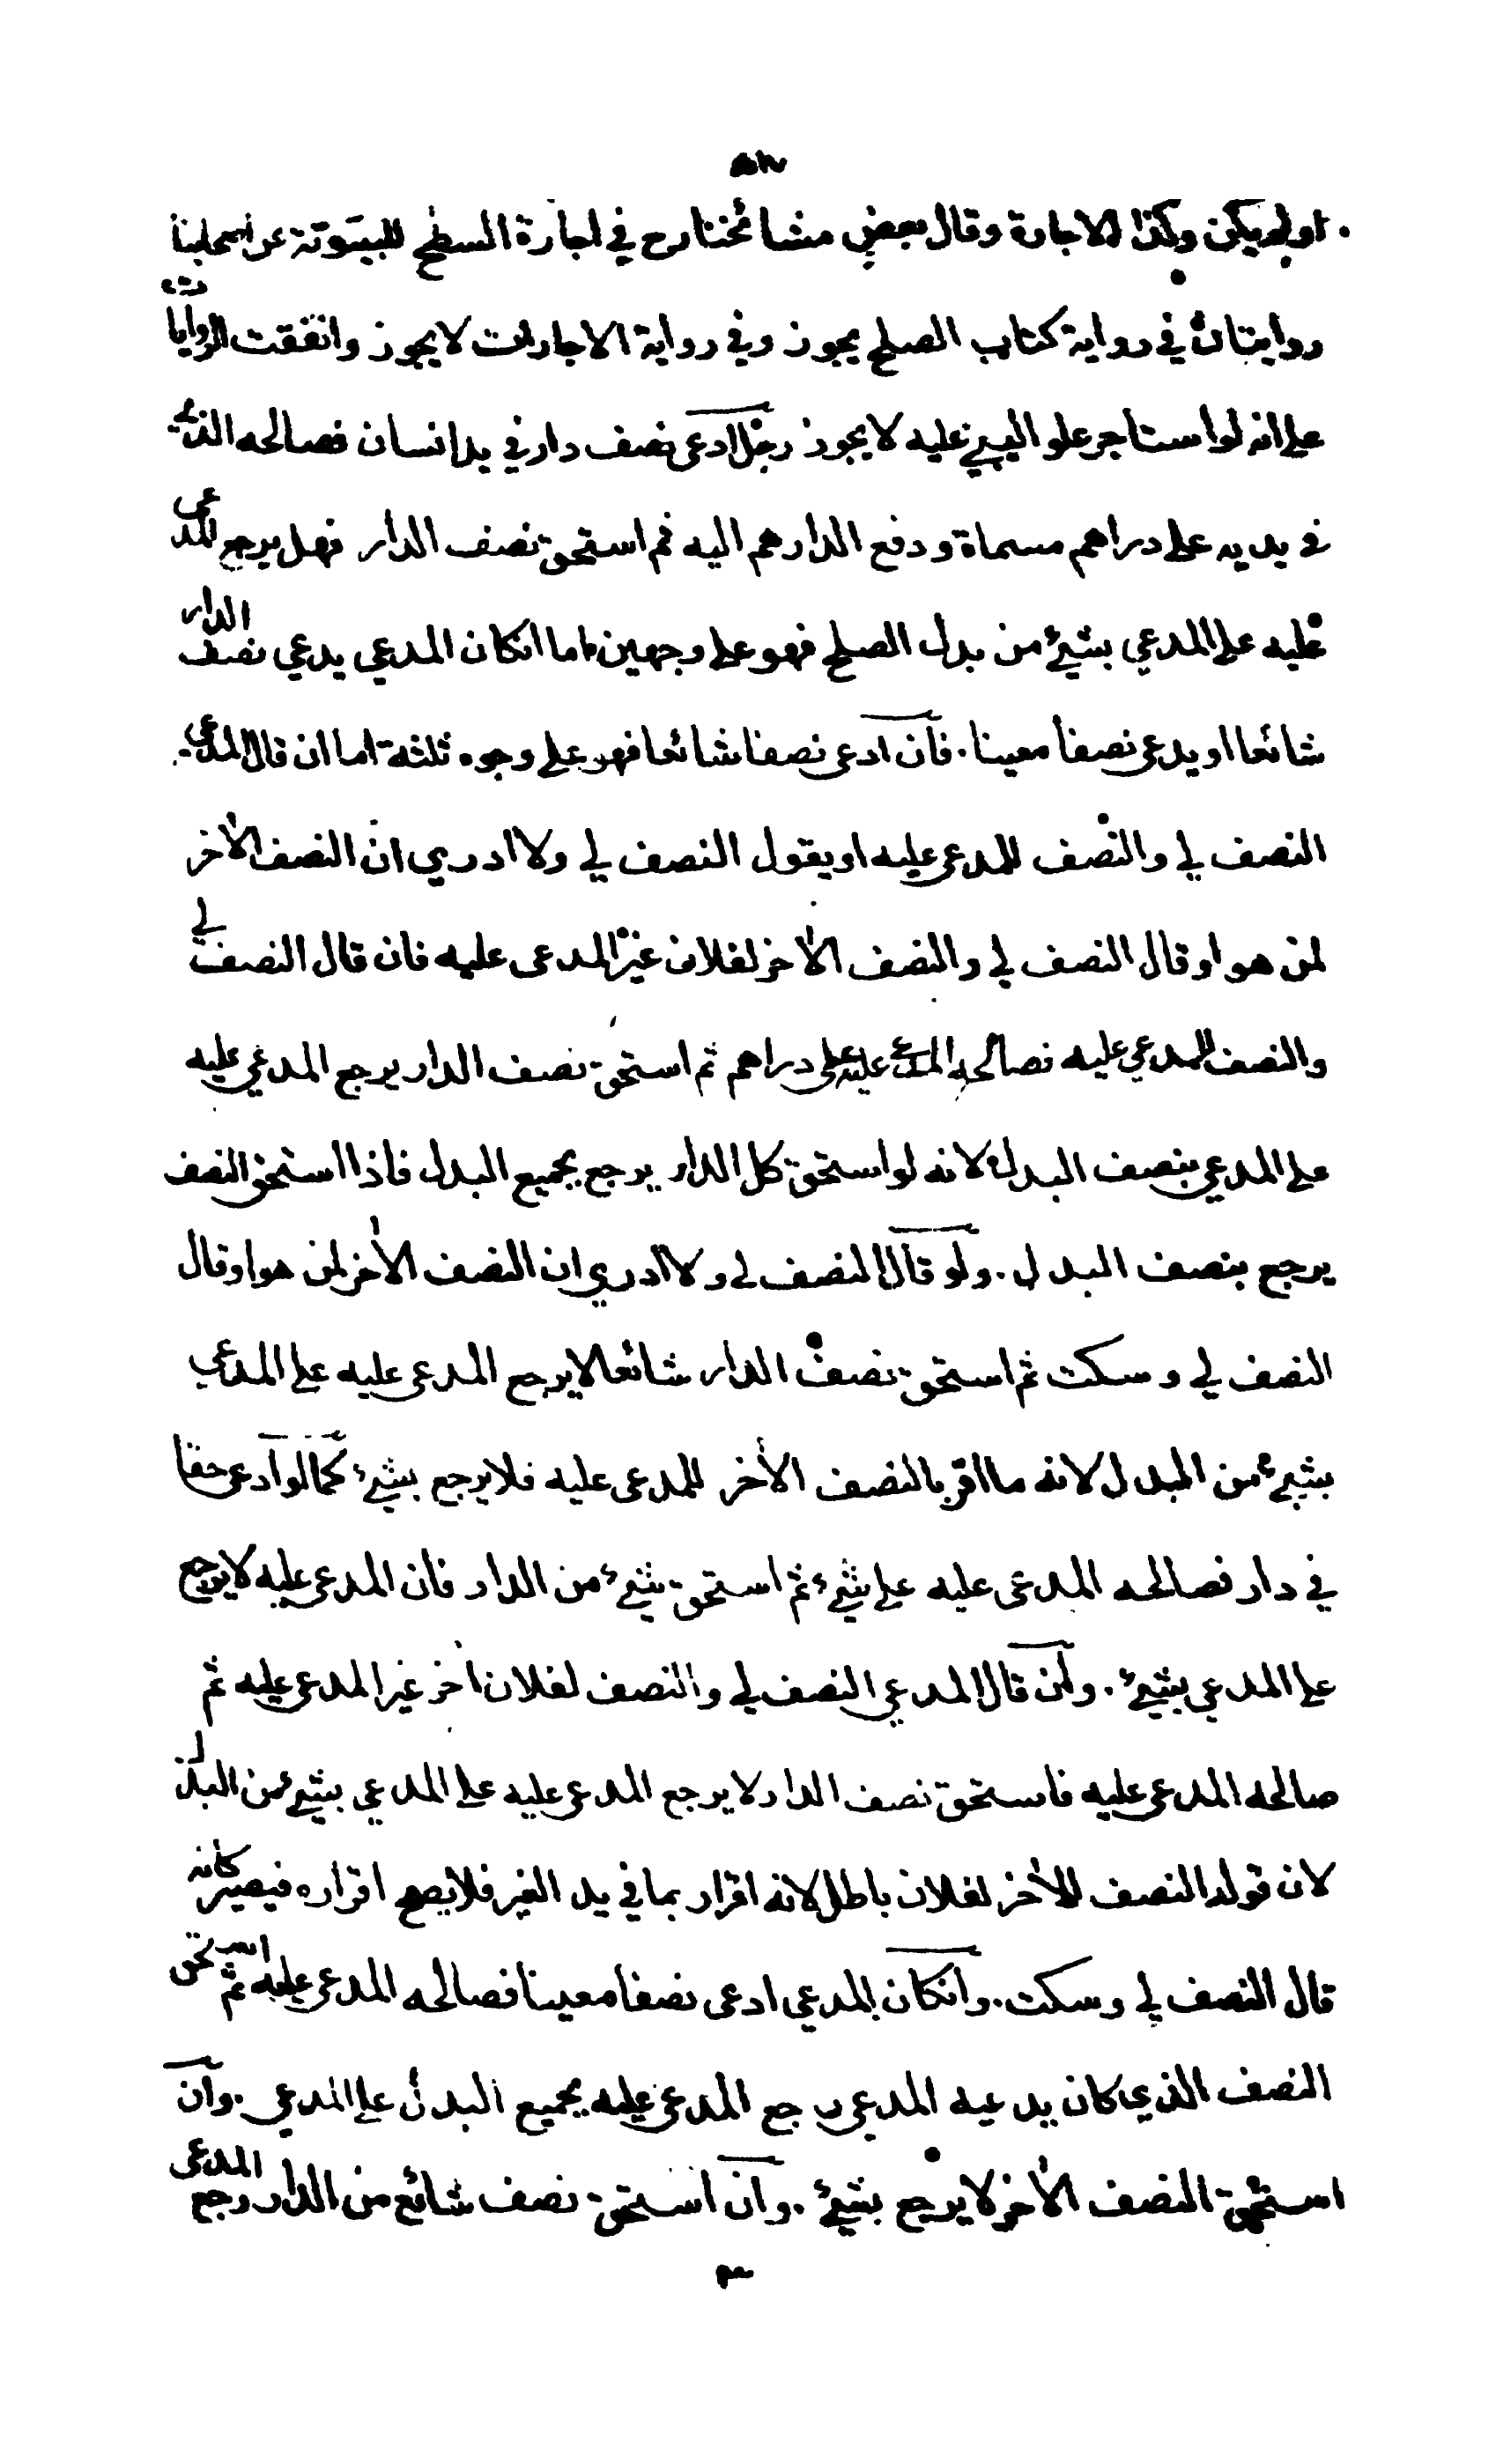 او لم يكن وكذا الاجارة وقال بعض مشائخنا رح في اجارة السطح للبيتوتة عن اصحابنا
روايتان في رواية كتاب الصلح يجوز وفي رواية الاجارات لا يجوز واتفقت الروايات
على انه لو استاجر علو البيت عليه لا يجوز رجل ادعى نصف دار في يد انسان فصالحه الذي
في يديه على دراهم مسماة ودفع الدارهم اليه ثم استحق نصف الدار فهل يرجع المدعى
عليه على المدعي بشيء من بدل الصلح فهو على وجهين اما انكان المدعي يدعي نصف الدار
شائعا او يدعى نصفا معينا. فان ادعى نصفا شائعا فهو على وجوه ثلثة اما ان قال المدعي
النصف لي والنصف للمدعى عليه او يقول النصف لي ولا ادري ان النصف الاخر
لمن هو او قال النصف لي والنصف الاخر لفلان غير المدعى عليه فان قال النصف لي
والنصف للمدعي عليه فصالحه المدعى عليه على دراهم ثم استحق نصف الدار يرجع المدعي عليه
على المدعي بنصف البدل لانه لو استحق كل الدار يرجع بجميع البدل فاذا استحق النصف
يرجع بنصف البدل. ولو قال النصف لي ولا ادري ان النصف الاخر لمن هو او قال
النصف لي وسكت ثم استحق نصف الدار شائعا لا يرجع المدعى عليه على المدعي
بشيء من البدل لانه ما اقر بالنصف الاخر للمدعى عليه فلا يرجع بشيء كما لو ادعى حقا
في دار فصالحه المدعى عليه على شيء ثم استحق شيء من الدار فان المدعى عليه لا يرجع
على المدعي بشيء. ولئن قال المدعي النصف لي والنصف لفلان اخر غير المدعى عليه ثم
صالحه المدعى عليه فاستحق نصف الدار لا يرجع المدعى عليه على المدعي بشيء من البدل
لان قوله النصف للاخر لفلان باطل لانه اقرار بما في يد الغير فلا يصح اقراره فيصير كانه
قال النصف لي وسكت. وانكان المدعي ادعى نصفا معينا فصالحه المدعى عليه ثم استحق
النصف الذي كان يدعيه المدعى رجع المدعى عليه بجميع البدل على المدعي. وان
استحق النصف الاخر لا يرجع بشيء. وان استحق نصف شائع من الدار رجع المدعى